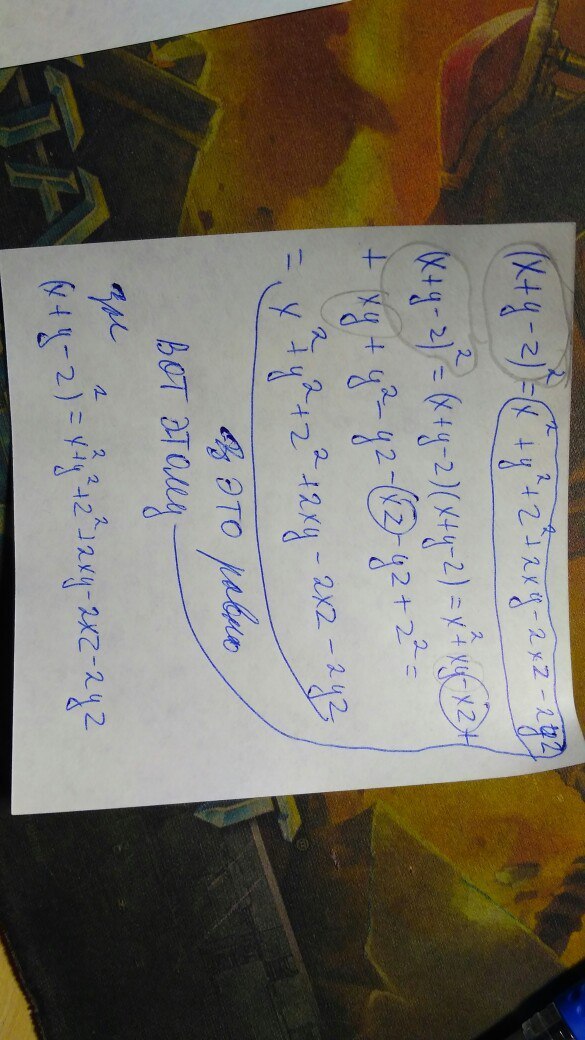 (x+y-z)² = x²+y²+z²+2xy-2xz-2yz
(x+y-z)² = (x+y-z)(x+y-z) = x²+xy-xz+
+ xy + y² - yz - xz - yz + z² =
= x²+y²+z²+2xy-2xz-2yz
это равно
вот этому
(x+y-z)² = x²+y²+z²+2xy-2xz-2yz